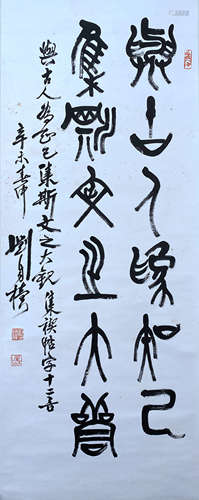 與古人為知己
集斯文之大觀
與古人為知己集斯文之大觀 集禊帖字十二言
辛未春仲
劉自櫝